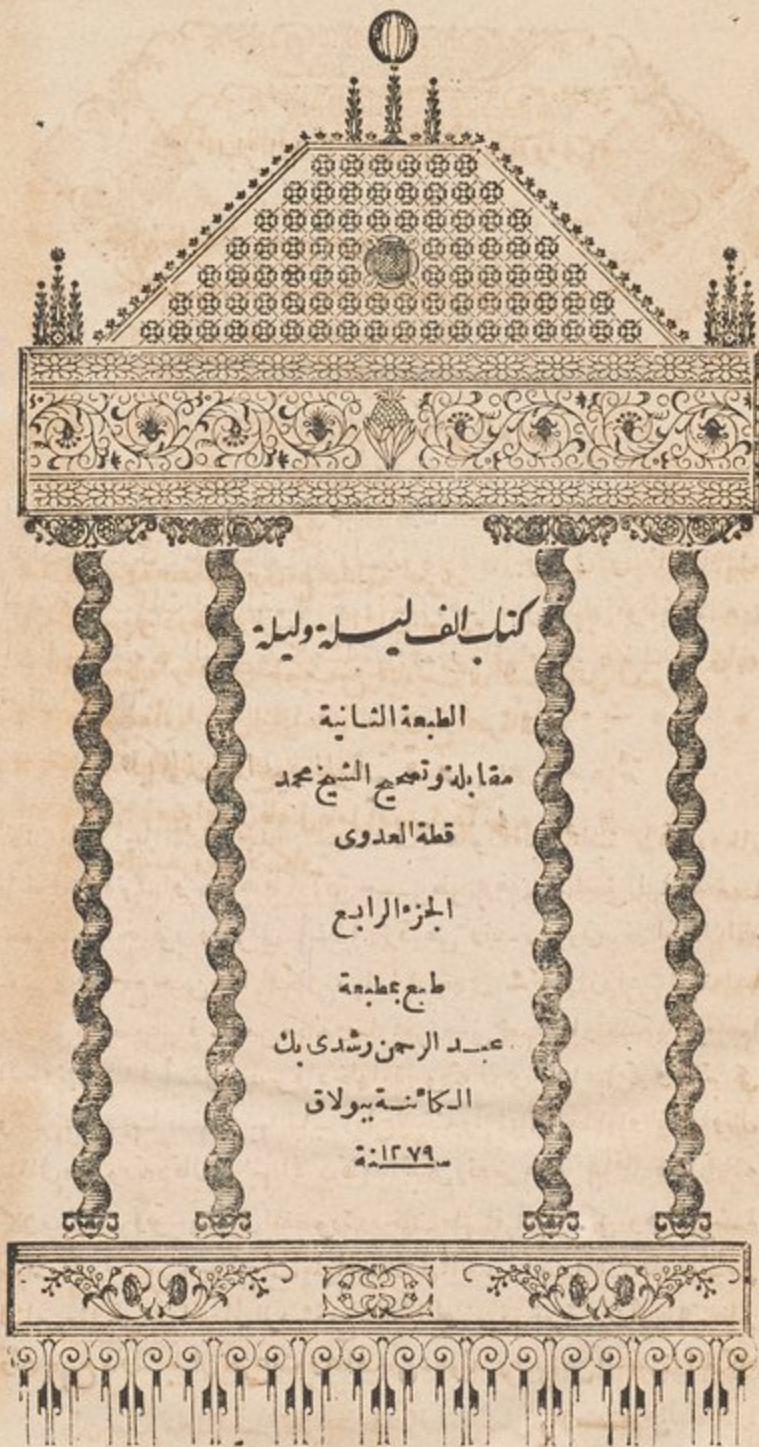 كتاب الف ليلة وليلة
الطبعة الثانية
مقابلة وتصحيح الشيخ محمد
قطة العدوى
الجزء الرابع
طبع بمطبعة
عبد الرحمن رشدى بك
الكائنة ببولاق
سنة ١٢٧٩